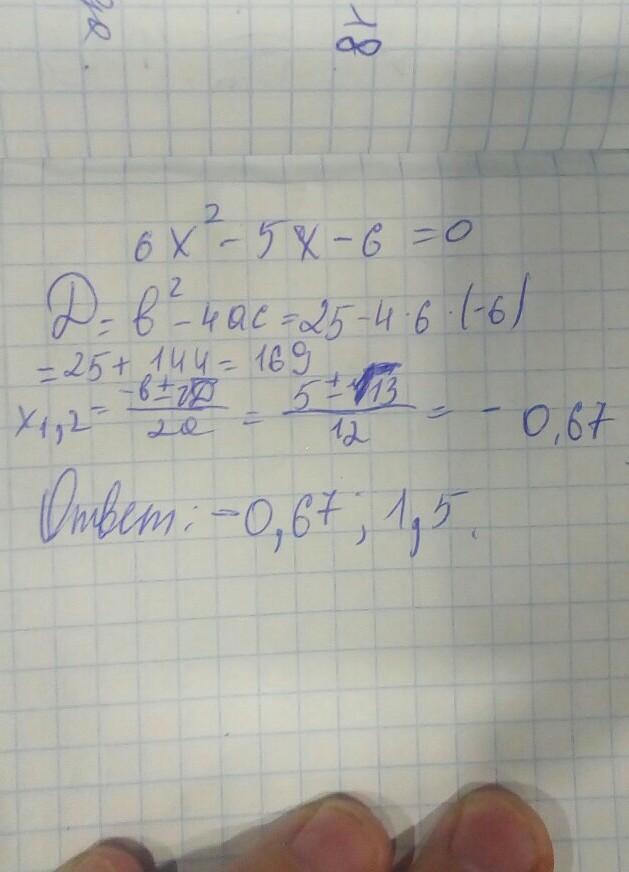 6x² - 5x - 6 = 0
D = b² - 4ac = 25 - 4 · 6 · (-6)
= 25 + 144 = 169
x1,2 = (-b ± √D)/2a = (5 ± 13)/12 = - 0,67
Ответ: -0,67; 1,5.